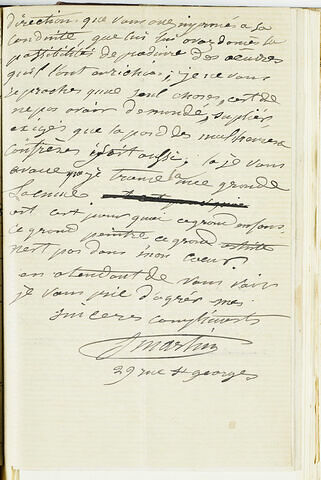 direction que vous avez imprimés a sa
conduite que lui on avez donnés la
possibilités de produire des oeuvres
qu'il l'ont enrichi ; je ne vous
reproches qu'une seul choses, cest de
ne pas avoir demandé, suplier,
exigés que la part des malheureux
confreres soit aussi ; la je vous
avoue que je trouve la une grande
Lacune
est cest pourquoi ce grand enfant
ce grand peintre ce grand artiste
n'est pas dans mon coeur.
en atendant de vous voir
je vous prie d'agréer mes
sinceres compliments
Martin
29 rue St georges